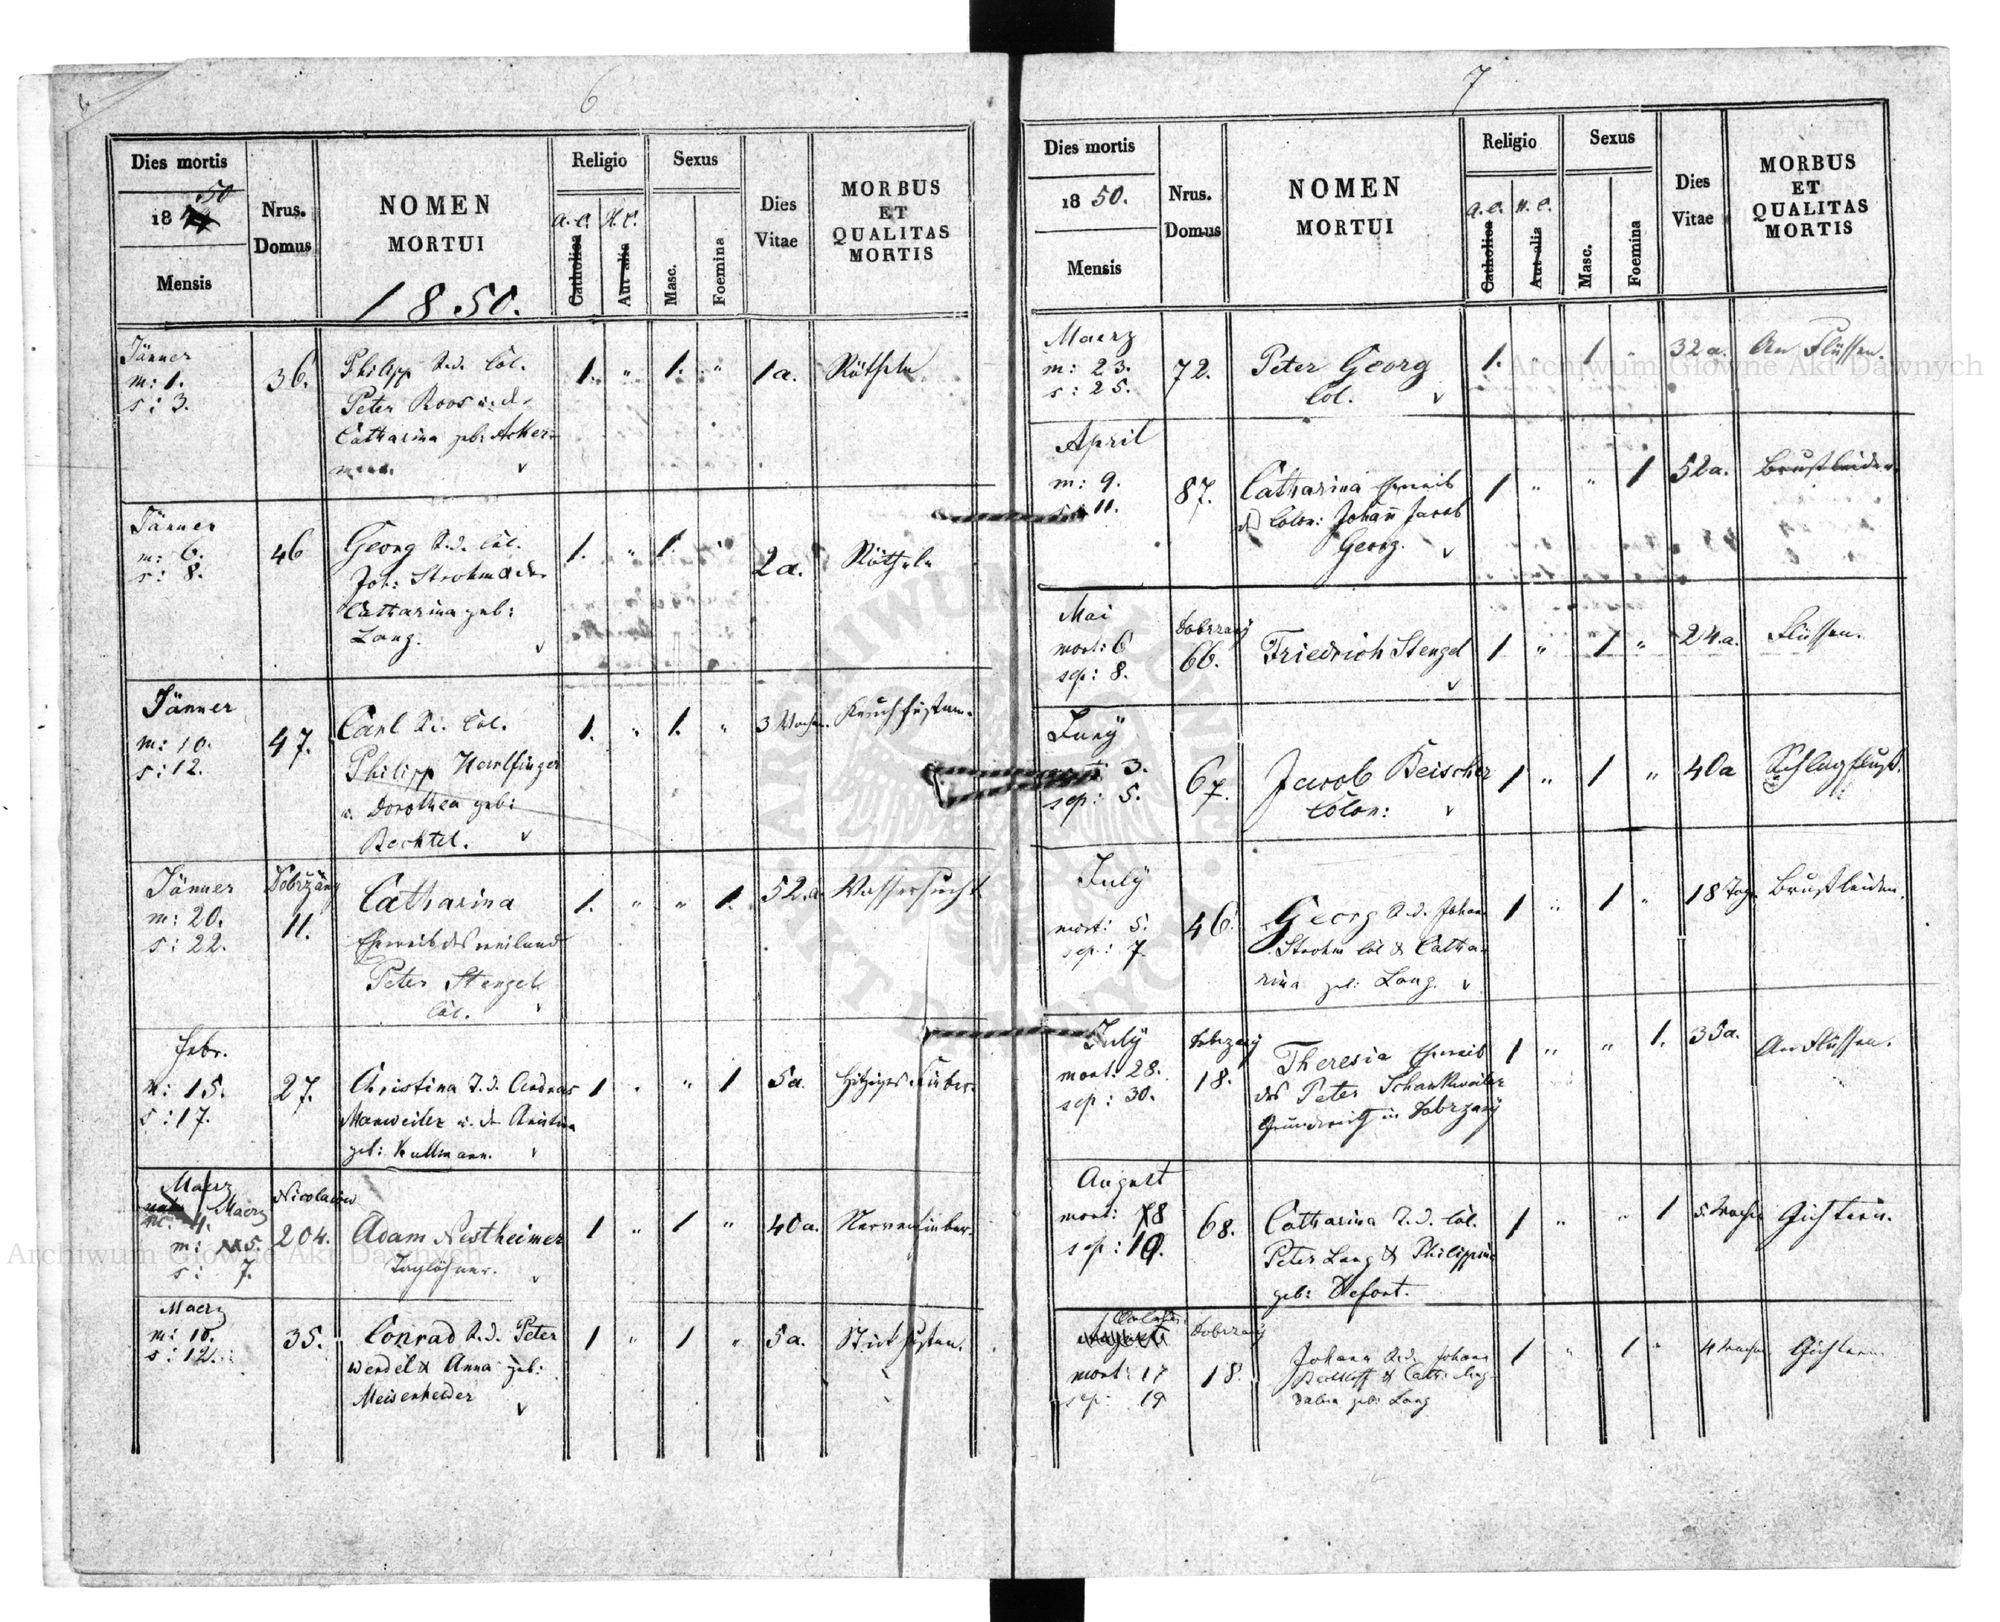 6
Dies mortis
1850
Mensis
Nrus.
Domus
NOMEN
MORTUI
1850.
Religio
A. C. H. C.
Catholica
Aut alia
Sexus
Masc.
Foemina
Dies
Vitae
MORBUS
ET
QUALITAS
MORTIS
Jänner
m: 1.
s: 3.
36.
Philipp S.d. Col.
Peter Roos u. d.
Catharina geb: Acker-
mann.
1. " 1. "
1 a.
Rötheln
Jänner
m: 6.
s: 8.
46
Georg S.d. Col.
Joh: Strohm & der
Catharina geb:
Lang.
1. " 1. "
2 a.
Rötheln
Jänner
m: 10.
s: 12.
47.
Carl S.d. Col.
Philipp Harlfinger
u. Dorothea geb:
Bechtel.
1. " 1. "
3 Wochen.
Keuchhusten.
Jänner
m: 20.
s: 22.
Dobrzany
11.
Catharina
Eheweib des weiland
Peter Stengel
Col.
1. " " 1.
52. a
Wassersucht
Febr.
m: 15.
s: 17.
27.
Christina T.d. Andreas
Manweiler u. der Christina
geb: Kullmann.
1 " " 1
5a
Hitziges Fieber.
Maerz
m: 5.
s: 7.
Nicolaiow
204.
Adam Nestheimer
Taglöhner.
1 " 1 "
40a.
Nervenfieber.
Maerz
m: 10.
s: 12.
35.
Conrad S.d. Peter
Wendel & Anna geb:
Meisenhelder
1 " 1 "
5a.
Stickhusten.
7
Dies mortis
1850.
Mensis
Nrus.
Domus
NOMEN
MORTUI
Religio
A. C. H. C.
Catholica
Aut alia
Sexus
Masc.
Foemina
Dies
Vitae
MORBUS
ET
QUALITAS
MORTIS
Maerz
m: 23.
s: 25.
72.
Peter Georg
Col.
1. " 1 "
32a.
An Flüssen.
April
m: 9.
s: 11.
87.
Catharina Eheweib
des Colon: Johann Jacob
Georg.
1 " " 1
52a.
Brustleiden.
Mai
mort: 6
sep: 8.
Dobrzany
66.
Friedrich Stengel
1 " 1 "
24.a.
Flüssen.
Juny
mort: 3.
sep: 5.
67.
Jacob Beischer
Colon:
1 " 1 "
40a
Schlagfluß.
July
mort: 5.
sep: 7.
46.
Georg S.d. Johann
Strohm Col & Catha-
rina geb: Lang.
1 " 1 "
18 Tage
Brustleiden.
July
mort: 28.
sep: 30.
Dobrzany
18.
Theresia Eheweib
des Peter Schankweiler
Grundwirth in Dobrzany
1 " " 1.
35a.
An Flüssen.
August
mort: 18
sep: 19.
68.
Catharina T.d. Col.
Peter Lang & Philippine
geb: Defort.
1 " " 1
5 Wochen
Gichtern.
mort: 17
sep: 19
Dobrzany
18.
Johann S.d. Johann
dalena geb: Lang
1 " 1 "
4 Wochen
Gichtern
Archiwum Główne Akt Dawnych
Archiwum Główne Akt Dawnych
ARCHIWUM GŁÓWNE AKT DAWNYCH